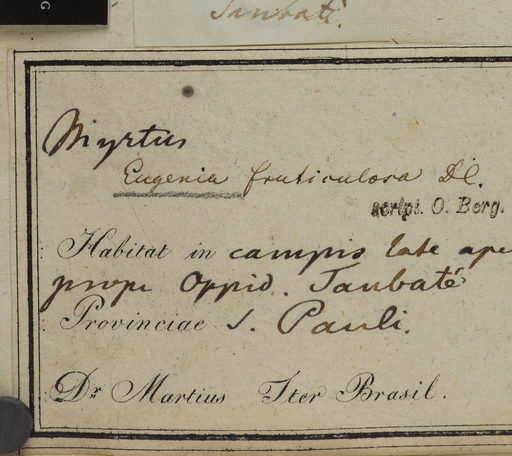 G
Taubaté.
Myrtus
Eugenia fruticulosa DC.
script. O. Berg.
Habitat in campis late ape
prope Oppid. Taubaté
Provinciae S. Pauli.
Dr. Martius Iter Brasil.